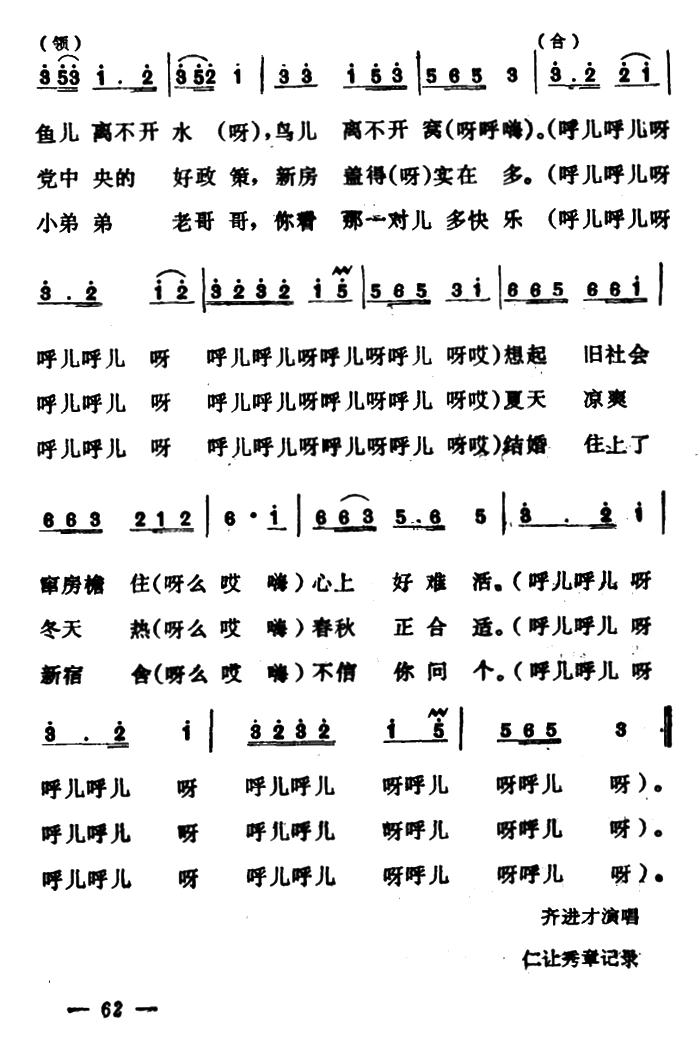 （领） （合）
3 53 1 . 2 | 352 1 | 3 3 1 53 | 565 3 | 3 . 2 21 |
鱼儿 离不开 水 （呀），鸟儿 离不开 窝（呀呼嗨）。（呼儿呼儿呀
党中 央的 好政 策，新房 盖得（呀）实在 多。（呼儿呼儿呀
小弟 弟 老哥 哥，你看 那一对儿 多快 乐 （呼儿呼儿呀
3 . 2 12 | 3232 15 | 565 31 | 665 661 |
呼儿呼儿 呀 呼儿呼儿呀呼儿呀呼儿 呀哎）想起 旧社会
呼儿呼儿 呀 呼儿呼儿呀呼儿呀呼儿 呀哎）夏天 凉爽
呼儿呼儿 呀 呼儿呼儿呀呼儿呀呼儿 呀哎）结婚 住上了
663 212 | 6 · 1 | 663 5.6 5 | 3 . 2 1 |
窜房檐 住（呀么 哎 嗨）心上 好难 活。（呼儿呼儿 呀
冬天 热（呀么 哎 嗨）春秋 正合 适。（呼儿呼儿 呀
新宿 舍（呀么 哎 嗨）不信 你问 个。（呼儿呼儿 呀
3 . 2 1 | 3232 1 5 | 565 3 ·‖
呼儿呼儿 呀 呼儿呼儿 呀呼儿 呀呼儿 呀）。
呼儿呼儿 呀 呼儿呼儿 呀呼儿 呀呼儿 呀）。
呼儿呼儿 呀 呼儿呼儿 呀呼儿 呀呼儿 呀）。
齐进才演唱
仁让秀章记录
— 62 —